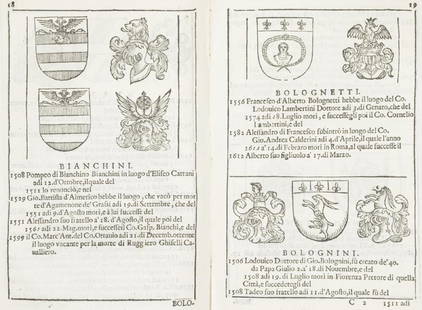 18
BIANCHINI.
1508 Pompeo di Bianchino Bianchini in luogo d'Eliseo Cattani
adi 12. d'Ottobre, il quale del
1511 lo renonciò, e nel
1529 Gio. Battista d'Almerico hebbe il luogo, che vacò per mor
te d'Agamenone de' Grassi adi 19. di Settembre, che del
1551 adi 9. d'Agosto mori, e à lui successe del
1551 Alessandro suo fratello a' 28. d'Agosto, il quale poi del
adi 22. Mag. mori, e successeli Co. Gasp. Bianchi, e del
1599 il Co. Marc'Ant. del Co. Ottauio adi 21. di Decemb. ottenne
il luogo vacante per la morte di Ruggiero Ghiselli Ca-
ualliero.
BOLO-
19
BOLOGNETTI.
1556 Francesco d'Alberto Bolognetti hebbe il luogo del Co.
Lodouico Lambertini Dottore adi 3. di Genaro, che del
1574 adi 28. Luglio mori, e successegli poi il Co. Cornelio
Lambertini, e del
1582 Alessandro di Francesco subintrò in luogo del Co.
Gio. Andrea Calderini adi 4. d'Aprile, il quale l'anno
1612 a' 14. di Febraro mori in Roma, al quale successe il
1612 Alberto suo figliuolo a' 17. di Marzo.
BOLOGNINI.
1506 Lodouico Dottore di Gio. Bolognini, fù creato de' 40.
da Papa Giulio 2. a' 18. di Nouembre, e del
1508 adi 19. di Luglio mori in Fiorenza Pretore di quella
Città, e succedetegli del
1508 Tadeo suo fratello adi 11. d'Agosto, il quale fù del
C 2 1511 adi